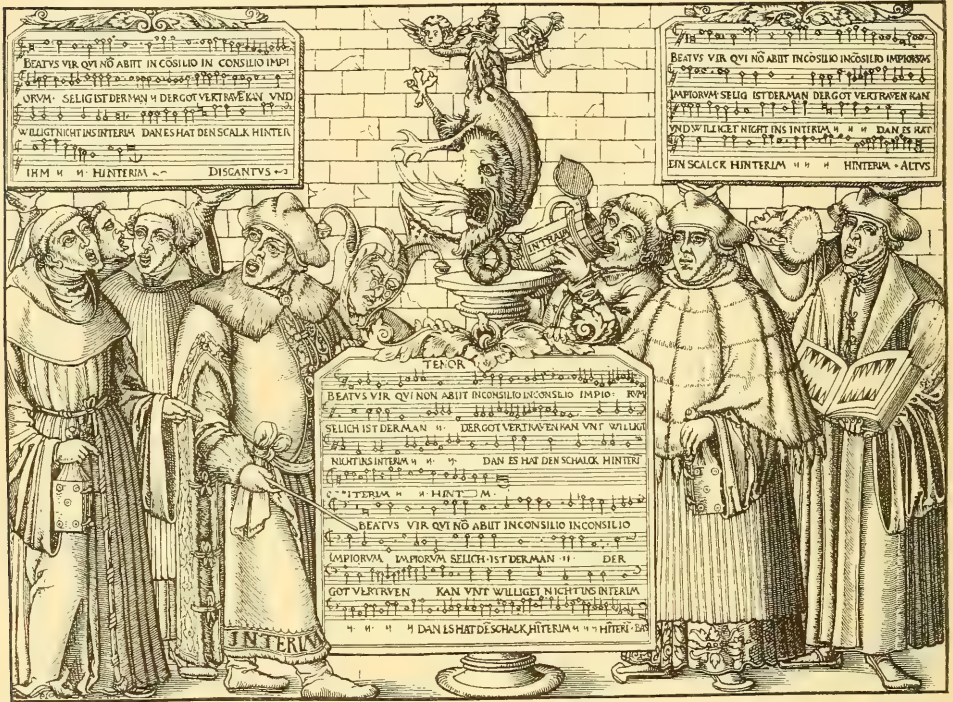 BEATVS VIR QVI NŌ ABIIT IN CŌSILIO IN CONSILIO IMPI
ORVM · SELIG IST DER MAN 〃 DER GOT VERTRAVĒ KAN VND
WILLIGT NICHT INS INTERIM DAN ES HAT DEN SCALK HINTER
IHM 〃 〃 · HINTERIM DISCANTVS
BEATVS VIR QVI NŌ ABIIT INCŌSILIO INCŌSILIO IMPIORVM
IMPIORVM · SELIG IST DER MAN DER GOT VERTRAVEN KAN
VND WILLIGET NICHT INS INTERIM 〃 〃 〃 DAN ES HAT
EIN SCALCK HINTERIM 〃 〃 〃 HINTERIM · ALTVS
INTRAVI
TENOR
BEATVS VIR QVI NON ABIIT INCONSILIO INCONSLIO IMPIO: RVM
SELICH IST DER MAN 〃 DER GOT VERTRAVEN KAN VNT WILLIGT
NICHT INS INTERIM 〃 〃 〃 DAN ES HAT DEN SCHALCK HINTERĪ
ITERIM 〃 〃 · HINT M ·
BEATVS VIR QVI NŌ ABIIT INCONSILIO INCONSILIO
IMPIORVM IMPIORVM SELICH · IST DER MAN 〃 DER
GOT VERTRVEN KAN VNT WILLIGET NICHT INS INTERIM
〃 〃 〃 〃 DAN ES HAT DĒ SCHALK HĪTERIM 〃 〃 〃 HĪTERĪ · BAS
INTERIM